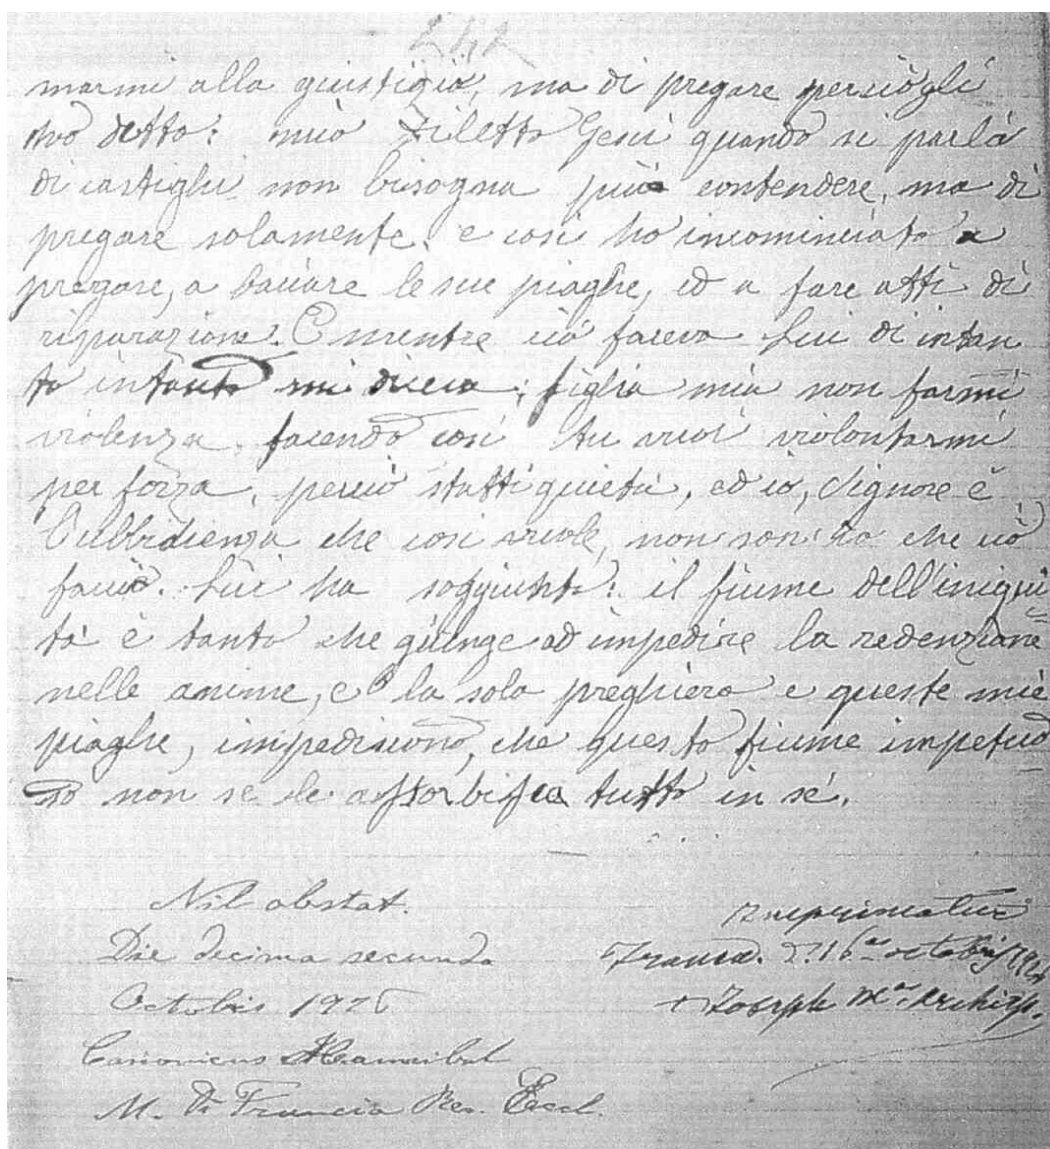 242
marmi alla giustizia, ma di pregare perciò gli
ho detto: mio diletto Gesù quando si parla
di castighi non bisogna più contendere, ma di
pregare solamente, e così ho incominciato a
pregare, a baciare le sue piaghe, ed a fare atti di
riparazione. E mentre ciò faceva Lui di intan
to intanto mi diceva: figlia mia non farmi
violenza, facendo così tu vuoi violentarmi
per forza, perciò statti quieta, ed io, Signore è
l'ubbidienza che così vuole, non son'io che ciò
faccio. Lui ha soggiunto: il fiume dell'iniqui
tà è tanto che giunge ad impedire la redenzione
nelle anime, e la sola preghiera e queste mie
piaghe, impediscono, che questo fiume impetuo
so non se le assorbisca tutto in sé.
Nil obstat.
Die decima secunda
Octobris 1926
Canonicus Hannibal
M. Di Francia Rev. Eccl.
Imprimatur
d. 16 octobris 1926
+ Joseph Ma. Archiep.